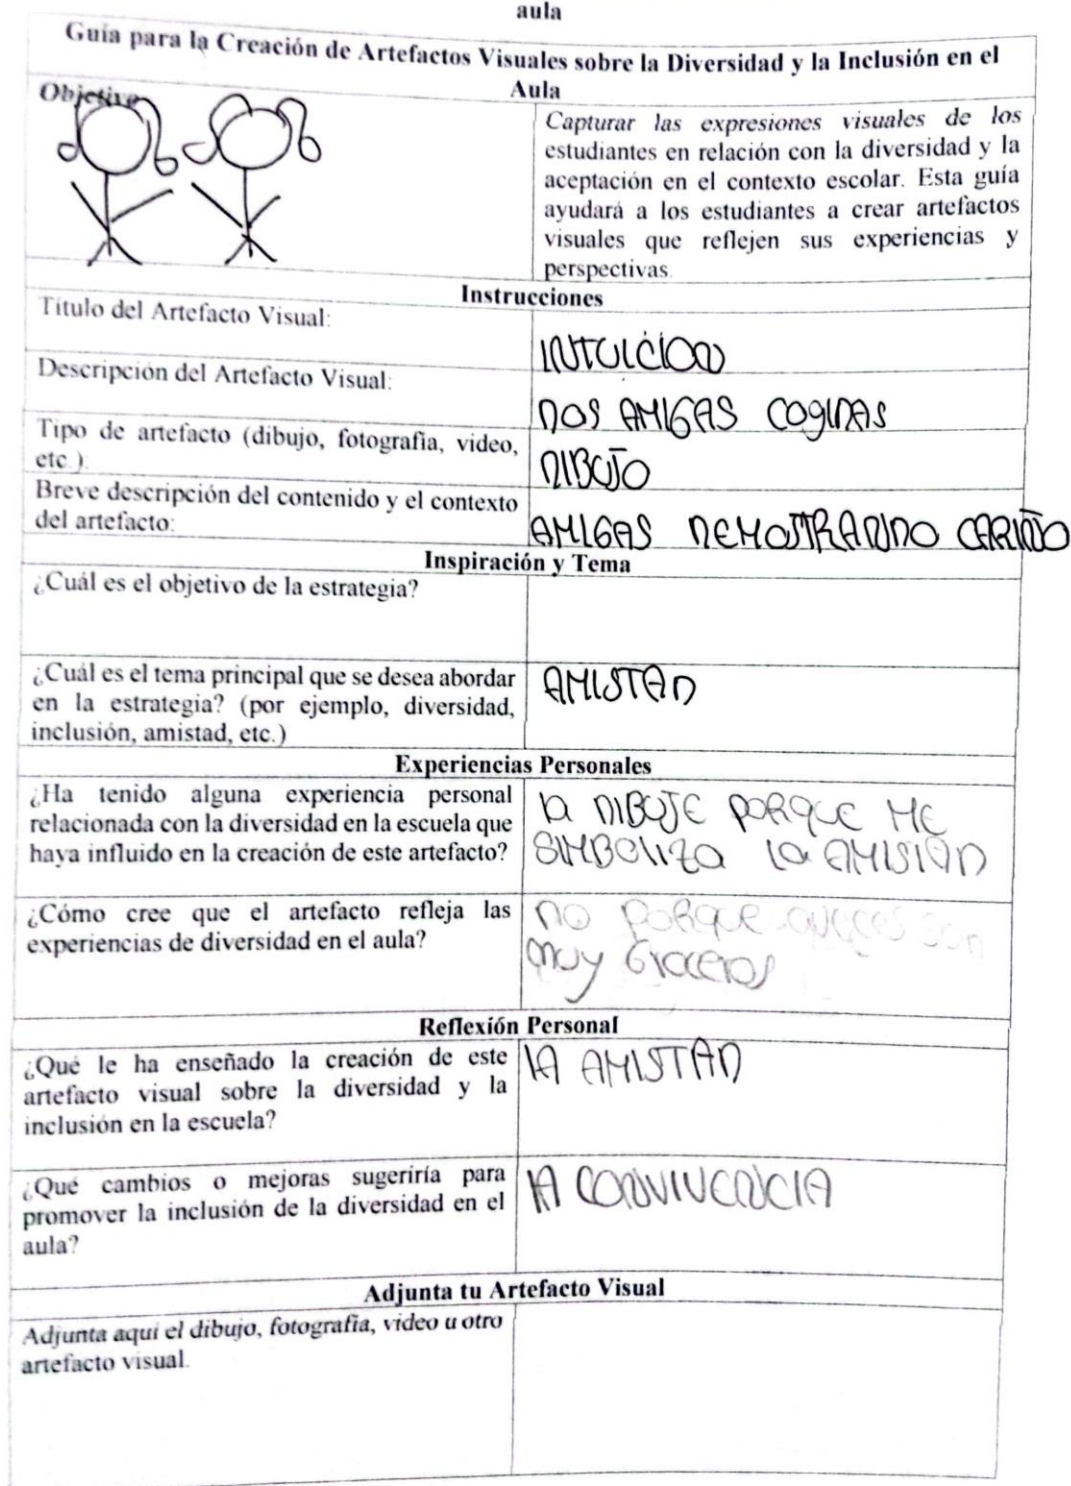 aula
Guía para la Creación de Artefactos Visuales sobre la Diversidad y la Inclusión en el
Aula
Objetivo
Capturar las expresiones visuales de los
estudiantes en relación con la diversidad y la
aceptación en el contexto escolar. Esta guía
ayudará a los estudiantes a crear artefactos
visuales que reflejen sus experiencias y
perspectivas.
Instrucciones
Título del Artefacto Visual:
INTUICION
Descripción del Artefacto Visual:
DOS AMIGAS COGIDAS
Tipo de artefacto (dibujo, fotografía, video,
etc.):
DIBUJO
Breve descripción del contenido y el contexto
del artefacto:
AMIGAS DEMOSTRANDO CARIÑO
Inspiración y Tema
¿Cuál es el objetivo de la estrategia?
¿Cuál es el tema principal que se desea abordar
en la estrategia? (por ejemplo, diversidad,
inclusión, amistad, etc.)
AMISTAD
Experiencias Personales
¿Ha tenido alguna experiencia personal
relacionada con la diversidad en la escuela que
haya influido en la creación de este artefacto?
la DIBUJE PORQUE ME
SIMBOLIZA la AMISTAD
¿Cómo cree que el artefacto refleja las
experiencias de diversidad en el aula?
NO PORQUE aveces son
muy Groceros
Reflexión Personal
¿Qué le ha enseñado la creación de este
artefacto visual sobre la diversidad y la
inclusión en la escuela?
lA AMISTAD
¿Qué cambios o mejoras sugeriría para
promover la inclusión de la diversidad en el
aula?
lA CONVIVENCIA
Adjunta tu Artefacto Visual
Adjunta aquí el dibujo, fotografía, video u otro
artefacto visual.